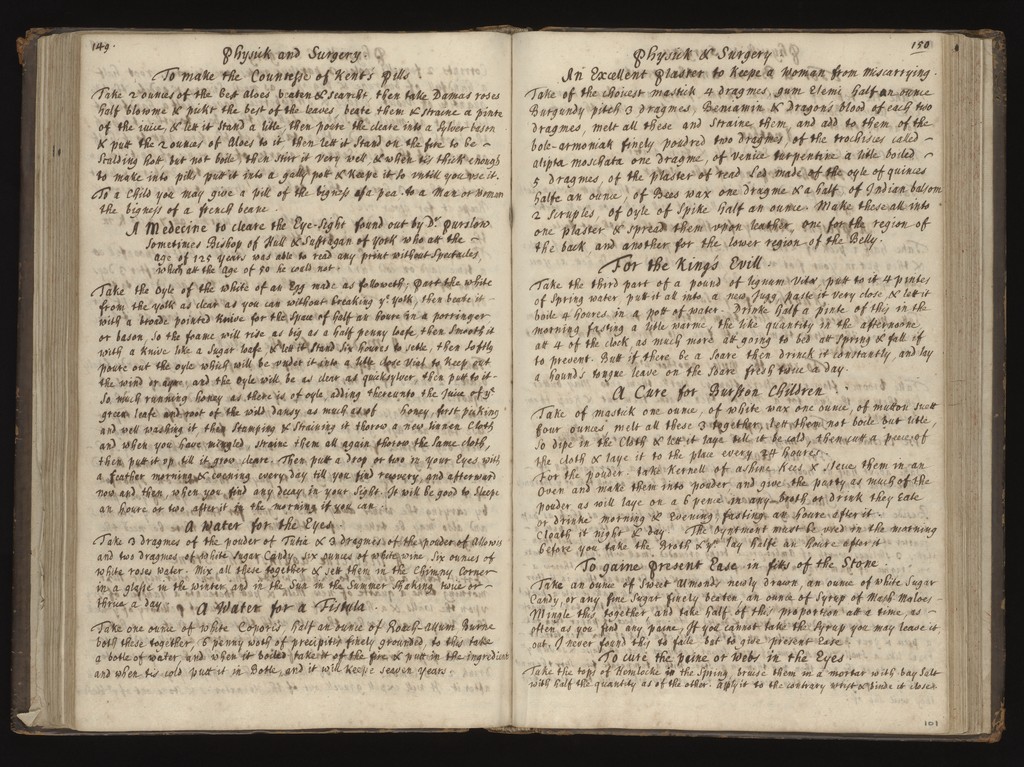 149.
Physick and Surgery.
To make the Countesse of Kent's Pills
Take 2 ounces of the best Aloes beaten & searcht then take Damas roses
half blowne & pickt the best of the leaves, beate them & straine a pinte
of the juice, & let it stand a litle, then poure the cleare into a sylver bason
& putt the 2 ounces of Aloes to it then lett it stand on the fire to be
scalding hott but not boile, then stirr it very well & when tis thick enough
to make into pills putt it into a gally pott & keepe it so untill you use it.
To a Child you may give a pill of the bigness of a pea. to a Man or Woman
the bigness of a french beane.
A Medecine to cleare the Eye-sight found out by Dr. Purslow
sometimes Bishop of Hull & Suffragan of York who att the
age of 125 years was able to read any print without Spectacles,
which att the age of 50 he could not.
Take the Oyle of the white of an Egg made as followeth, Part the white
from the yolk as clear as you can without breaking ye yolk, then beate it
with a broade pointed Knive for the space of half an houre in a porringer
or bason, so the foame will rise as big as a half penny loafe, then smooth it
with a knive like a sugar loafe & lett it stand six houres to setle, then softly
poure out the oyle which will be under it into a litle close Vial to keep out
the wind or ayre, and the oyle will be as clear as quicksylver, then putt to it
so much running honey as there is of oyle, adding thereunto the juice of ye
green leafe and root of the wild dansy as much as of honey, first picking
and well washing it then stamping & straining it thorow a new linnen cloth
and when you have mingled, straine them all again thorow the same cloth,
then putt it up till it grow cleare. Then putt a drop or two in your Eyes with
a feather morning & evening every day till you find recovery, and afterward
now and then, when you find any decay in your sight. It will be good to sleepe
an houre or two after it in the morning if you can.
A Water for the Eyes
Take 3 dragmes of the pouder of Tutia & 3 dragmes of the pouder of Allowis
and two dragmes of white sugar Candy, six ounces of white wine six ounces of
white roses water. Mix all these together & sett them in the Chimny Corner
in a glasse in the winter, and in the Sun in the Summer shaking twice or
thrice a day.
A Water for a Fistula.
Take one ounce of white Coporis, half an ounce of Roach-allum burne
both these together, 6 penny woth of precipity finely grounded to this take
a botle of water, and when it boiled take it of the fire & putt in the ingredient
and when tis cold putt it in Botle, and it will keepe seeven years.
150
Physick & Surgery
An Excellent Plaster to keepe a woman from Miscarrying.
Take of the choicest mastick 4 dragmes, gum Elemi half an ounce
Burgundy pitch 3 dragmes, Beniamin & dragons blood of each two
dragmes, melt all these and straine them, and add to them of the
bole-armoniak finely poudred two dragmes of the trochisces caled
alipta moschata one dragme, of venice turpentine a litle boiled
5 dragmes, of the plaster of read led made of the oyle of quinces
halfe an ounce, of Bees wax one dragme & a half, of Indian balsom
2 scruples, of oyle of spike half an ounce. Make these all into
one plaster & spread them upon leather, one for the region of
the back and another for the lower region of the Belly.
For the King's Evill.
Take the third part of a pound of lignum Vitæ, putt to it 4 pintes
of spring water putt it all into a new jugg paste it very close, & lett it
boile 4 houres in a pott of water. Drinke half a pinte of this in the
morning fasting a litle warme, the like quantity in the afternoone
att 4 of the clock, as much more att going to bed att spring & fall of
to prevent. Butt if there be a soare then drinck it constantly, and lay
a hounds tongue leave on the soare fresh twice a day.
A Cure for Bursten Children
Take of mastick one ounce, of white wax one ounce, of mutton suett
four ounces, melt all these 3 together, lett them not boile but litle,
so dipe in the Cloth & lett it laye till it be cold, then cutt a peece of
the cloth & laye it to the place every 24 houres.
For the pouder. take Kernell of ashine Kees & sleve them in an
Oven and make them into pouder and give the party as much of the
pouder as will laye on a 6 pence in any broth or drink they eate
or drinke morning & evening fasting an houre after it.
Cloath it night & day. The Oyntment must be used in the morning
before you take the Broth & yn lay halfe an houre after it
To gaine present Ease in fitts of the Stone.
Take an ounce of sweet Almonds newly drawn, an ounce of white sugar
Candy, or any fine sugar finely beaten, an ounce of Syrup of Mash Maloes.
Mingle this together and take half of this proportion att a time as
often as you find any paine, If you cannot take the Syrup you may leave it
out, I never found this to faile but to give present Ease.
To cure the paine or Webs in the Eyes.
Take the tops of Hemlocke in the spring, bruise them in a mortar with bay salt
with half the quantity as of the other. apply it to the contrary wrist & binde it close.
101